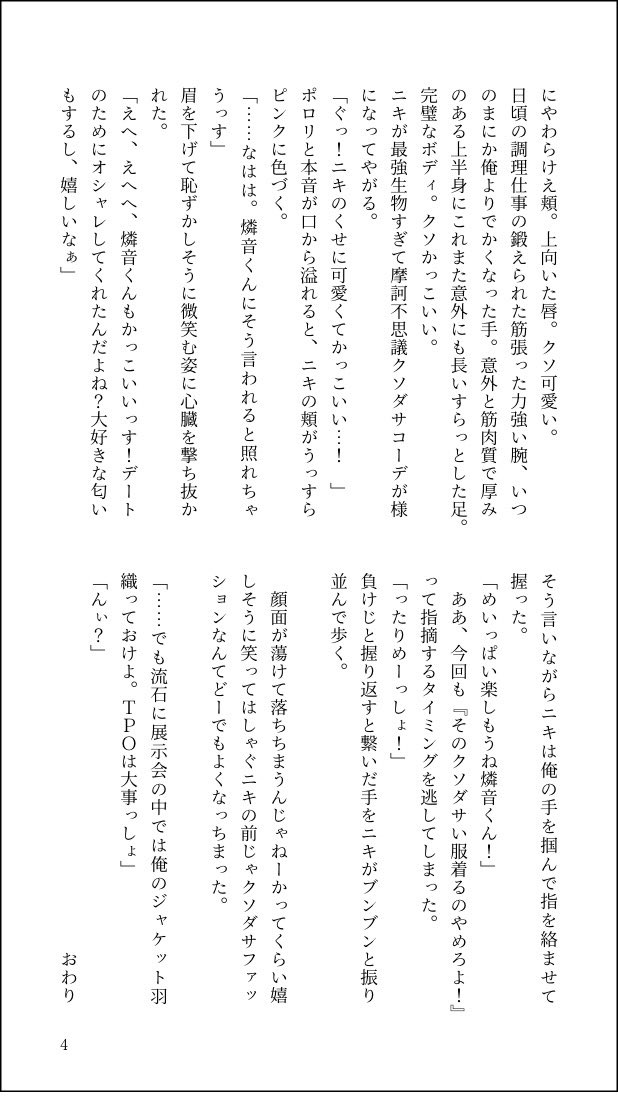 にやわらけえ頬。上向いた唇。クソ可愛い。
日頃の調理仕事の鍛えられた筋張った力強い腕、いつ
のまにか俺よりでかくなった手。意外と筋肉質で厚み
のある上半身にこれまた意外にも長いすらっとした足。
完璧なボディ。クソかっこいい。
ニキが最強生物すぎて摩訶不思議クソダサコーデが様
になってやがる。
「ぐっ!ニキのくせに可愛くてかっこいい…!　」
ポロリと本音が口から溢れると、ニキの頬がうっすら
ピンクに色づく。
「……なはは。燐音くんにそう言われると照れちゃ
うっす」
眉を下げて恥ずかしそうに微笑む姿に心臓を撃ち抜か
れた。
「えへ、えへへ、燐音くんもかっこいいっす!デート
のためにオシャレしてくれたんだよね?大好きな匂い
もするし、嬉しいなぁ」
そう言いながらニキは俺の手を掴んで指を絡ませて
握った。
「めいっぱい楽しもうね燐音くん!」
　ああ、今回も『そのクソダサい服着るのやめろよ!』
って指摘するタイミングを逃してしまった。
「ったりめーっしょ!」
負けじと握り返すと繋いだ手をニキがブンブンと振り
並んで歩く。
　顔面が蕩けて落ちちまうんじゃねーかってくらい嬉
しそうに笑ってはしゃぐニキの前じゃクソダサファッ
ションなんてどーでもよくなっちまった。
「……でも流石に展示会の中では俺のジャケット羽
織っておけよ。TPOは大事っしょ」
「んぃ?」
おわり
4